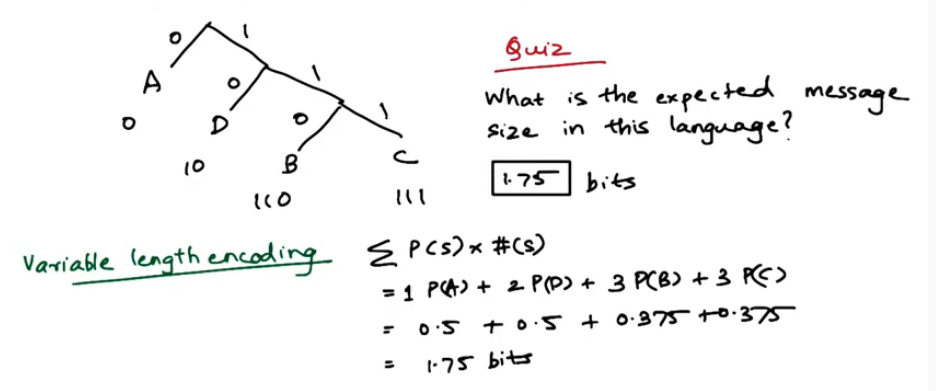 0 1
A 0 1
0 D 0 1
10 B C
110 111
Quiz
What is the expected message
size in this language?
1.75 bits
Variable length encoding
∑ P(s) × #(s)
= 1 P(A) + 2 P(D) + 3 P(B) + 3 P(C)
= 0.5 + 0.5 + 0.375 + 0.375
= 1.75 bits